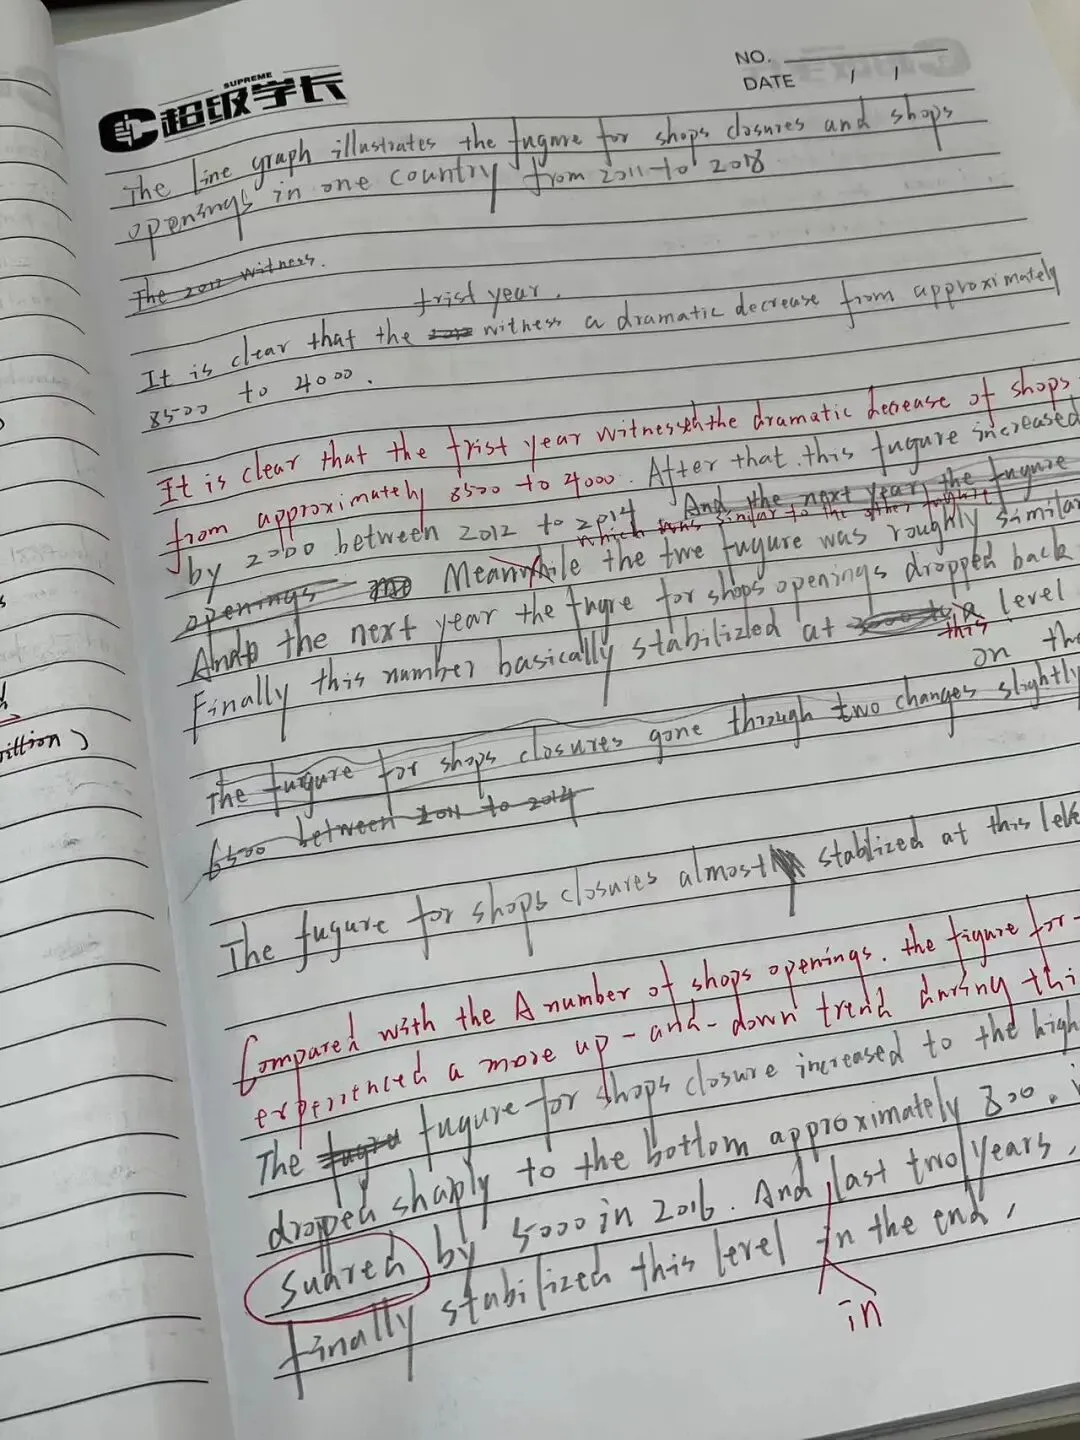 SUPREME
超级学长
NO.
DATE / /
The line graph illustrates the fugure for shops closures and shops
openings in one country from 2011 to 2018
The 2012 witness.
frist year.
It is clear that the 2012 witness a dramatic decrease from approximately
8500 to 4000.
It is clear that the frist year witnessed the dramatic decrease of shops
from approximately 8500 to 4000. After that. this fugure increased
by 2000 between 2012 to 2014 And the next year, the fugure
which was similar to the other fugure
openings Meanwhile the two fugure was roughly similar
And the next year the fugre for shops openings dropped back
Finally this number basically stabilizled at a level
this
on the
The fugure for shops closures gone through two changes slightly
6500 between 2011 to 2014
The fugure for shops closures almost stablized at this level
Compared with the A number of shops openings. the figure for
experienced a more up-and-down trend during this
The fugure for shops closure increased to the high
dropped sharply to the bottom approximately 800.
suared by 5000 in 2016. And last two years,
finally stabilized this level in the end,
in
villion)